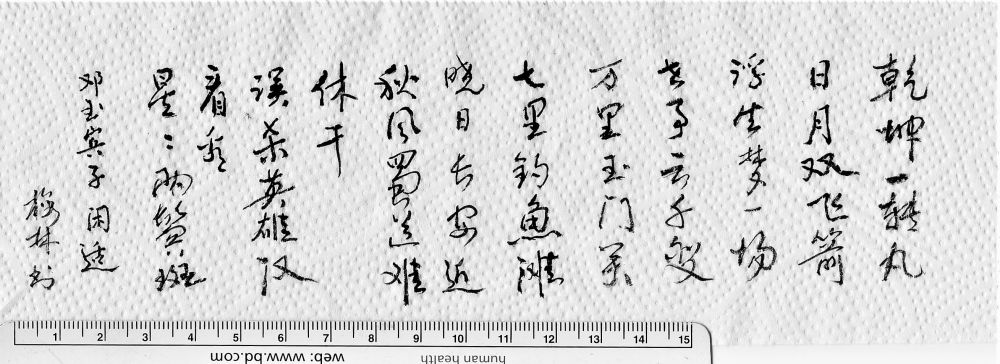 乾坤一转丸
日月双飞箭
浮生梦一场
世事云千变
万里玉门关
七里钓鱼滩
晓日长安近
秋风蜀道难
休干
误杀英雄汉
看看
星:两鬓斑
邓玉宾子 闲适
梅林书
1 2 3 4 5 6 7 8 9 10 11 12 13 14 15
web: www.bd.com
human health